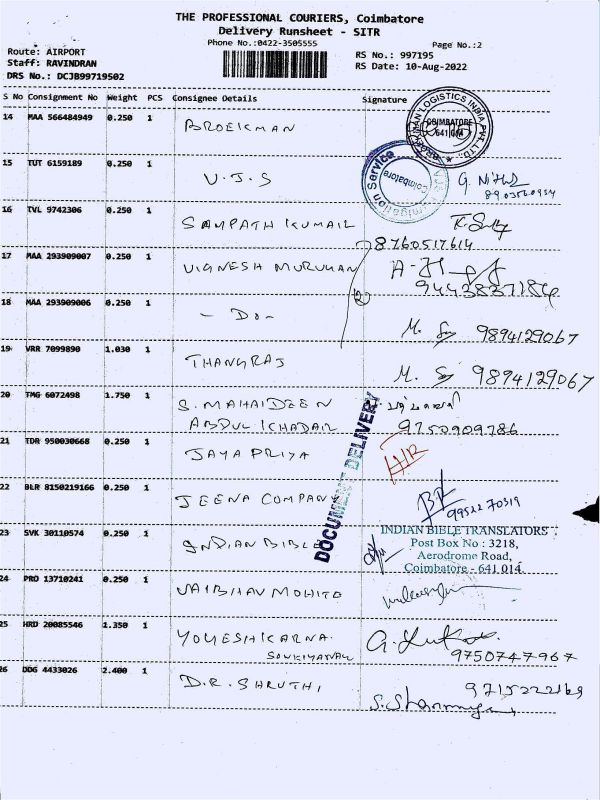 THE PROFESSIONAL COURIERS, Coimbatore
Delivery Runsheet - SITR
Phone No.:0422-3505555
Page No.:2
Route: AIRPORT
Staff: RAVINDRAN
DRS No.: DCJB99719502
RS No.: 997195
RS Date: 10-Aug-2022
S No Consignment No Weight PCS Consignee Details Signature
14 MAA 566484949 0.250 1 BROEKMAN
LOGISTICS INDIA PVT. LTD.
COIMBATORE
641 014
15 TUT 6159189 0.250 1 V.J.S
Service
Coimbatore
8903560934
16 TVL 9742306 0.250 1 SAMPATH KUMAR
8760517614
17 MAA 293909007 0.250 1 VIGNESH MURUKAN
9443837184
18 MAA 293909006 0.250 1 - Do -
M. 9894129067
19 VRR 7099890 1.030 1 THANGRAJ
M. 9894129067
20 TMG 6072498 1.750 1 S. MAHAIDEEN
ABDUL KHADAR 9750909786
21 TDR 950030668 0.250 1 JAYA PRIYA
DOCUMENT DELIVERY
22 BLR 8150219166 0.250 1 JEENA COMPANY
9952270319
23 SVK 30110574 0.250 1 INDIAN BIBLE
INDIAN BIBLE TRANSLATORS
Post Box No : 3218,
Aerodrome Road,
Coimbatore - 641 014
24 PRO 13710241 0.250 1 VAIBHAV MOHITO
25 HRD 20085546 1.350 1 YOGESHKARNA
9750747967
26 DDG 4433026 2.400 1 D.R. SHRUTHI
9715222169